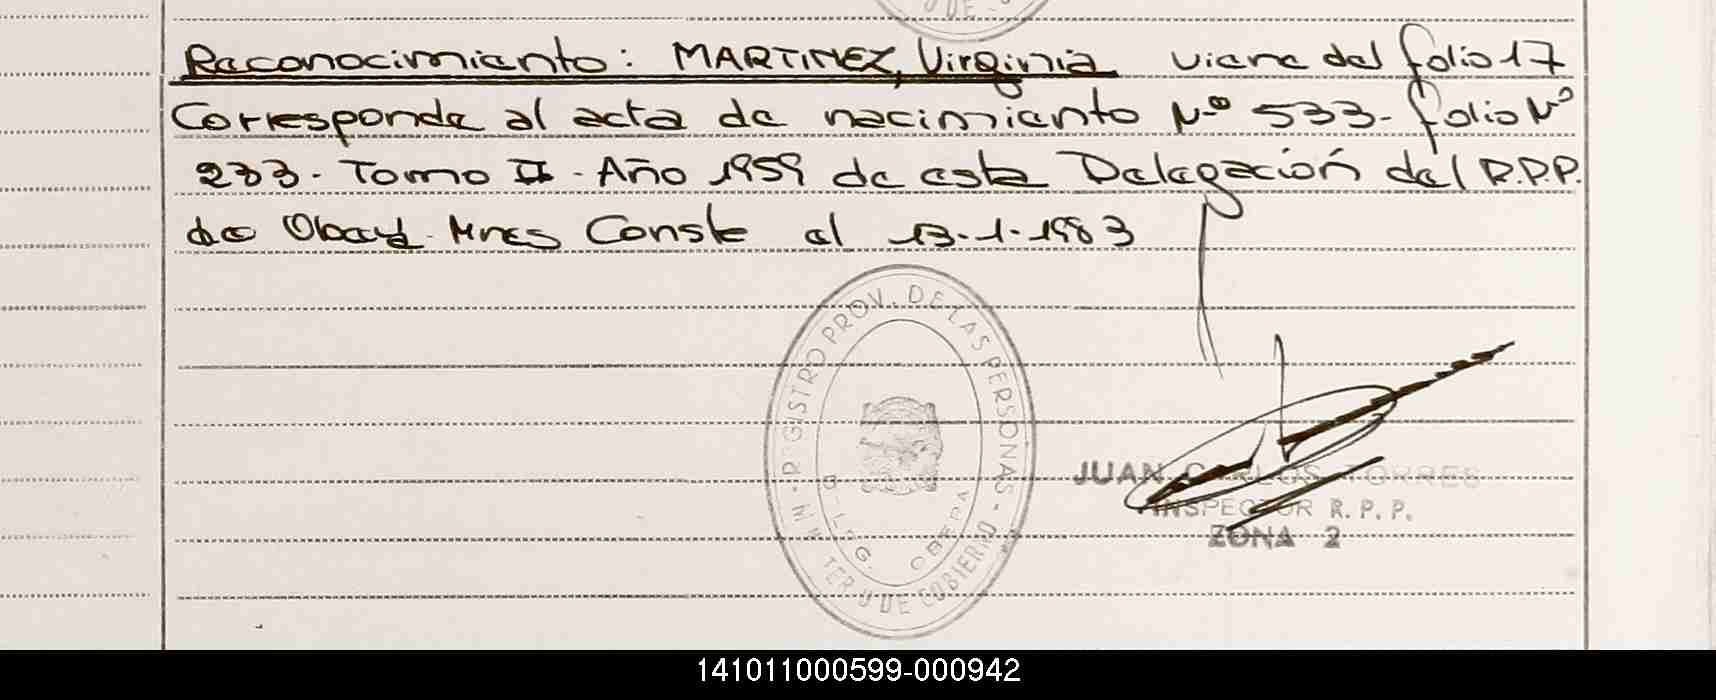 Reconocimiento: MARTINEZ, Virginia viene del folio 17
Corresponde al acta de nacimiento Nº 533- folio Nº
233- Tomo II - Año 1959 de esta Delegación del R.P.P.
de Mnes Conste al 13-1-1983
REGISTRO PROV. DE LAS PERSONAS - MINISTERIO DE GOBIERNO
DELEG. OBERA
JUAN CARLOS TORRES
INSPECTOR R. P. P.
ZONA 2
141011000599-000942